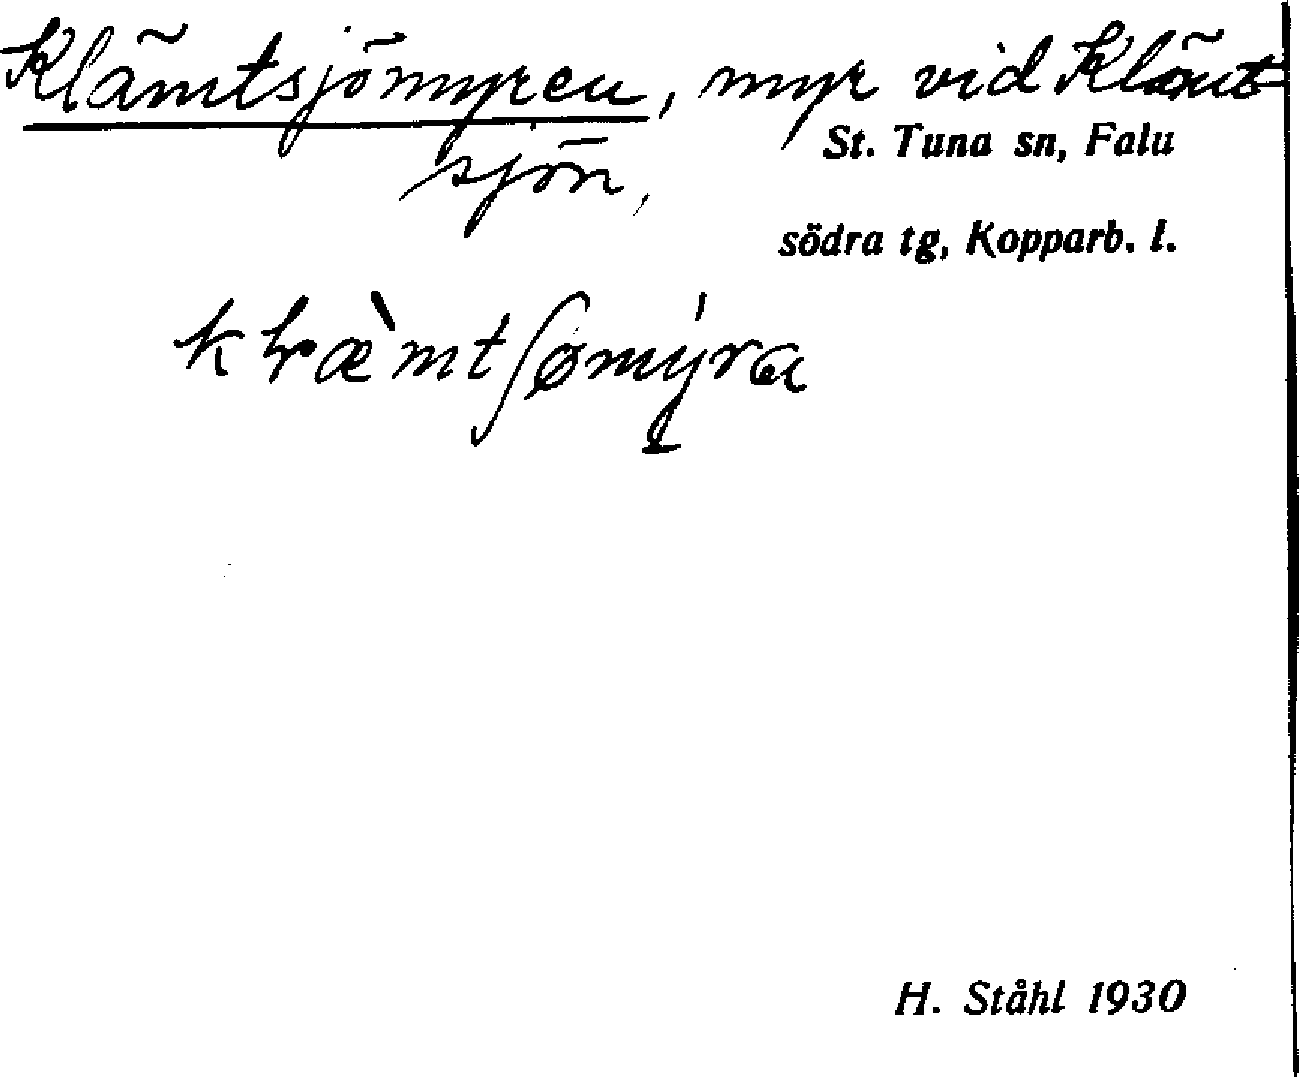 Klämtsjömyren, myr vid Klämt-
St. Tuna sn, Falu
sjön,
södra tg, Kopparb. l.
klæ̀mtʃømýra
H. Ståhl 1930